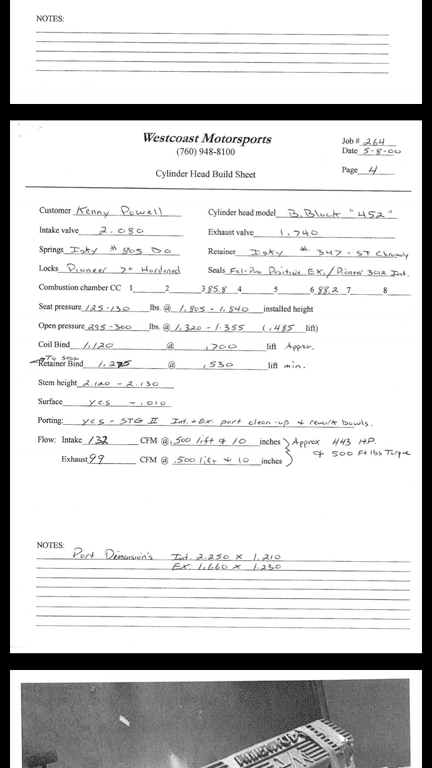 NOTES:
Westcoast Motorsports
(760) 948-8100
Job # 264
Date 5-8-00
Cylinder Head Build Sheet
Page 4
Customer Kenny Powell Cylinder head model B.Block "452"
Intake valve 2.080 Exhaust valve 1.740
Springs Isky # 805 DO Retainer Isky # 347-ST Chromoly
Locks Pioneer 7° Hardened Seals Fel-Pro Positive EX./Pioneer 3012 Int.
Combustion chamber CC 1 2 3 85.8 4 5 6 88.2 7 8
Seat pressure 125-130 lbs. @ 1.805-1.840 installed height
Open pressure 295-300 lbs. @ 1.320-1.355 (.485 lift)
Coil Bind 1.120 @ .700 lift Approx.
To seal
Retainer Bind 1.275 @ .530 lift min.
Stem height 2.120 - 2.130
Surface yes -.010
Porting: yes - STG II Int.+Ex. port clean-up & rework bowls.
Flow: Intake 132 CFM @ .500 lift & 10 inches } Approx 443 H.P.
& 500 Ft lbs Torque
Exhaust 99 CFM @ .500 lift & 10 inches
NOTES:
Port Dimension's Int. 2.250 x 1.210
EX. 1.660 x 1.230